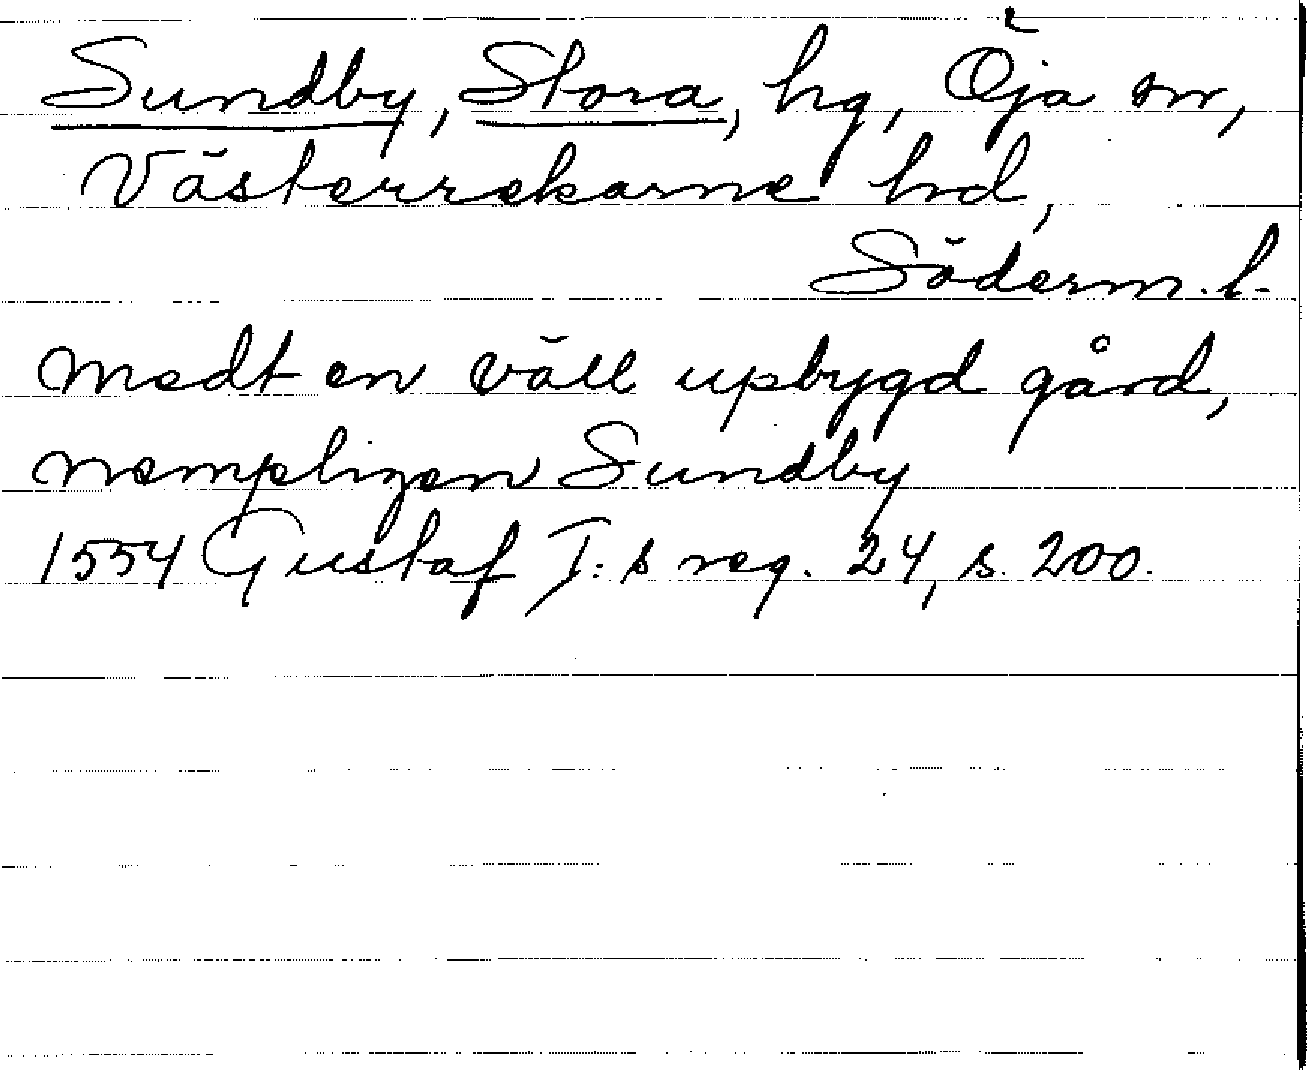 Sundby, Stora, hg, Öja sn,
Västerrekarne hd,
Söderm. l.
medt en väll upbygd gård,
nempligen Sundby
1554 Gustaf I:s reg. 24, s. 200.